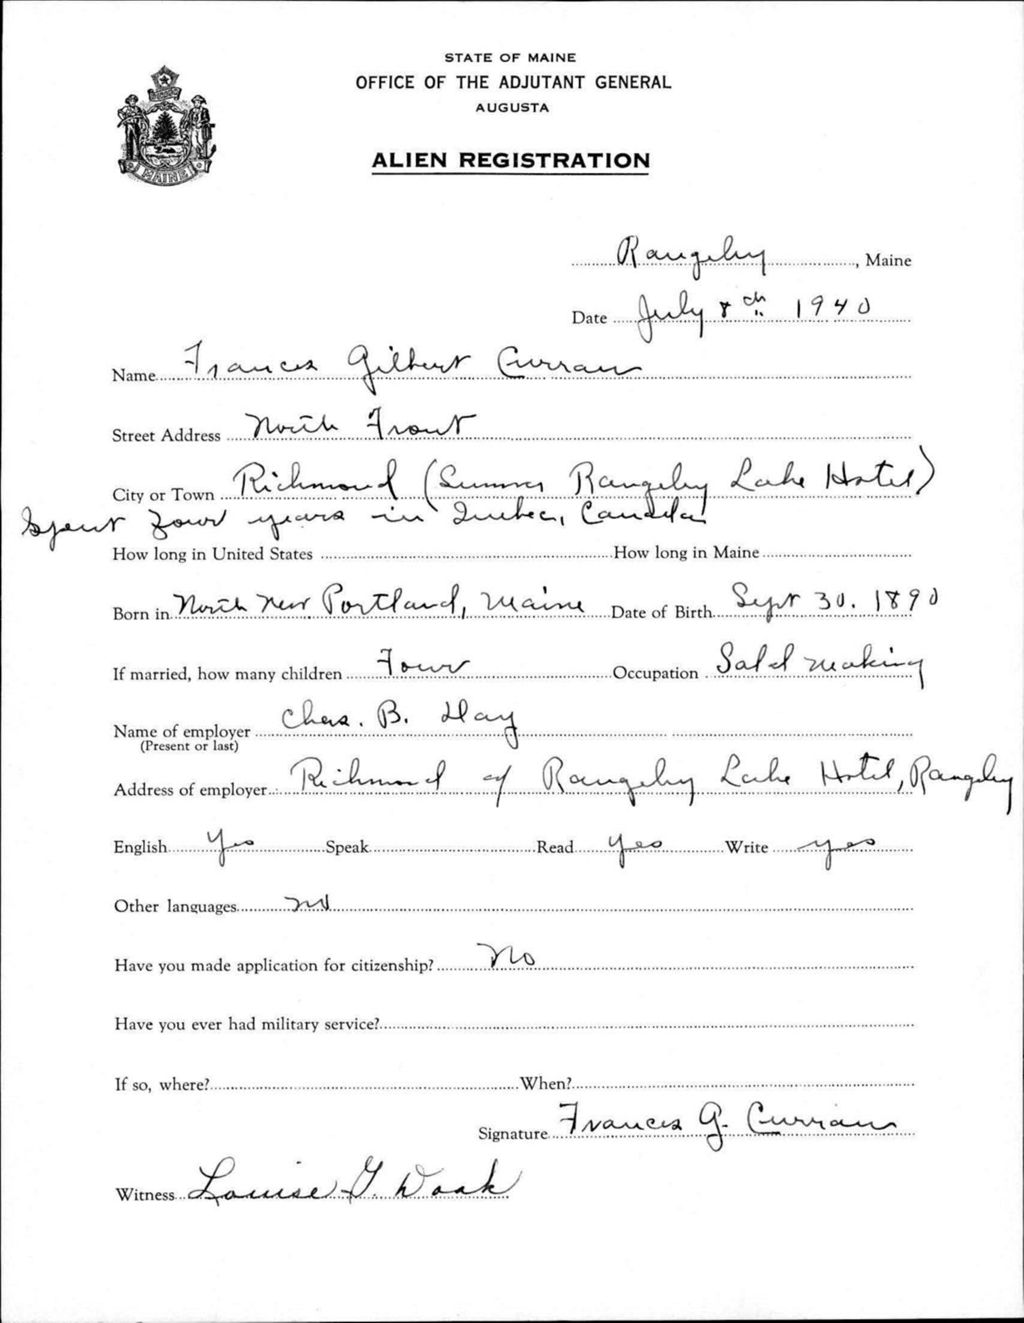 STATE OF MAINE
OFFICE OF THE ADJUTANT GENERAL
AUGUSTA
ALIEN REGISTRATION
MAINE
Rangeley, Maine
Date July 8th 1940
Name Frances Gilbert Curran
Street Address North Front
City or Town Richmond (Summer Rangeley Lake Hotel)
Spent four years in Quebec, Canada
How long in United States How long in Maine
Born in North New Portland, Maine Date of Birth Sept 30. 1890
If married, how many children Four Occupation Salad making
Name of employer Chas. B. Day
(Present or last)
Address of employer Richmond of Rangeley Lake Hotel, Rangeley
English Yes Speak Read Yes Write yes
Other languages no
Have you made application for citizenship? No
Have you ever had military service?
If so, where? When?
Signature Frances G. Curran
Witness Louise G. Doak